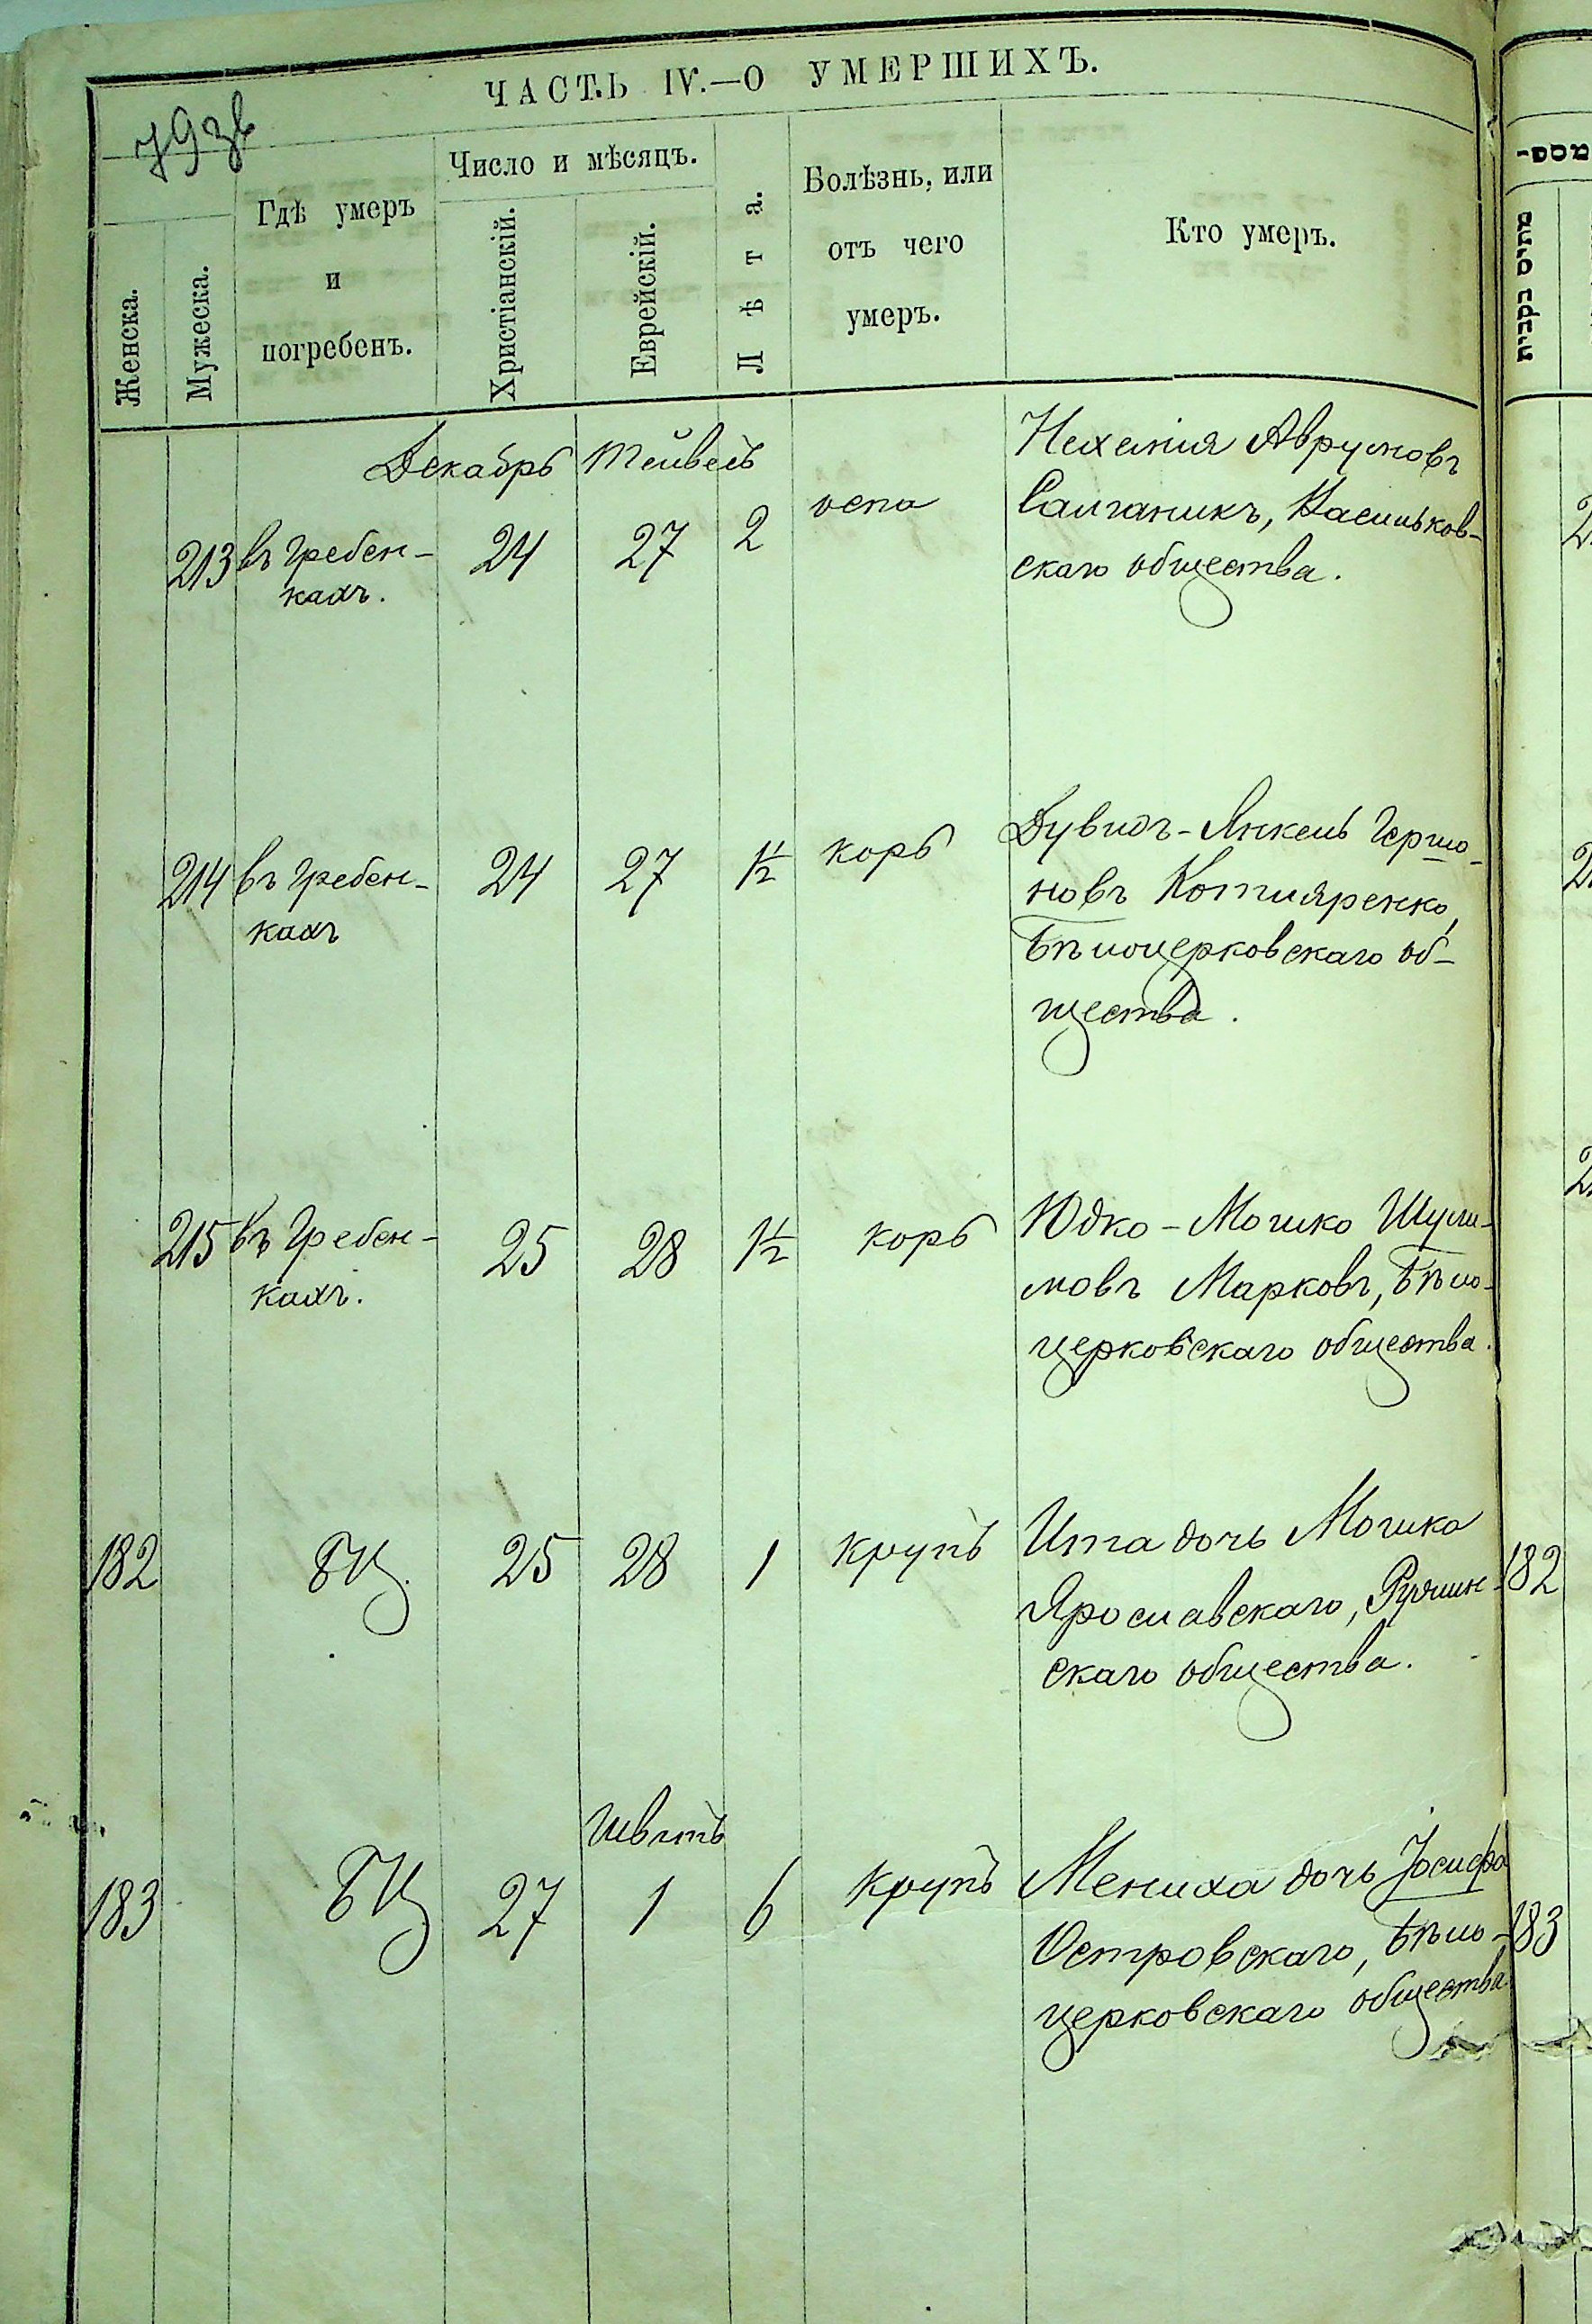 ЧАСТЬ IV.—О УМЕРШИХЪ.
793б
Женска.
Мужеска.
Гдѣ умеръ
и
погребенъ.
Число и мѣсяцъ.
Христіанскій.
Еврейскій.
Лѣта.
Болѣзнь, или
отъ чего
умеръ.
Кто умеръ.
מספ-
מתים נקבית
Декабрь Тейвесъ
213 въ Гребен-
кахъ.
24 27 2 оспа
Нехемія Аврумовъ
Салганикъ, Васильков-
скаго общества.
214 въ Гребен-
кахъ
24 27 1½ корь
Дувидъ-Янкель Гершо-
новъ Котляренко,
Бѣлоцерковскаго об-
щества.
215 въ Гребен-
кахъ.
25 28 1½ корь
Юдко-Мошко Шули-
мовъ Марковъ, Бѣло-
церковскаго общества.
182 БЦ. 25 28 1 крупъ
Ита дочь Мошка
Ярославскаго, Ружин-
скаго общества.
182
Шватъ
183 БЦ 27 1 6 крупъ
Мениха дочь Іосифа
Островскаго, Бѣло-
церковскаго общества
183